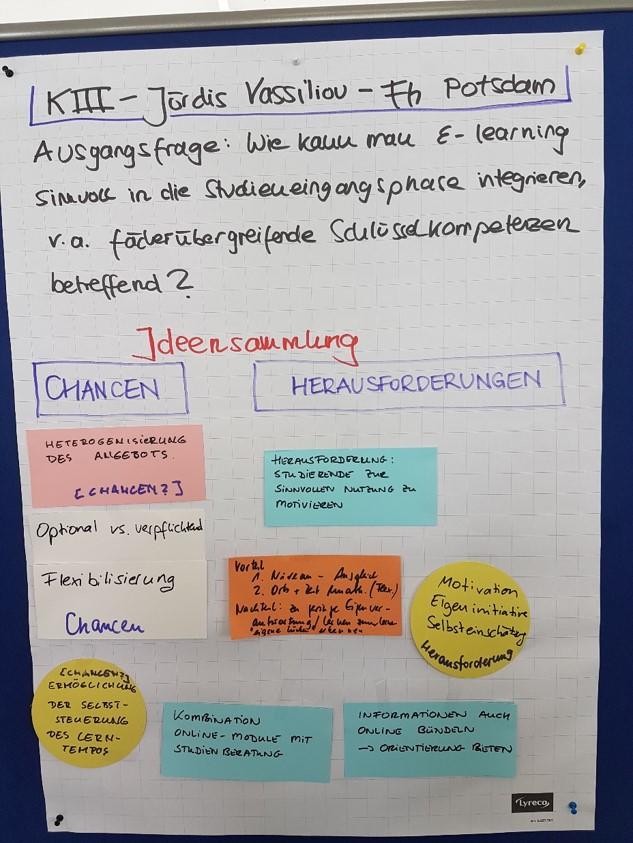 KIII - Jördis Vassiliou - Fh Potsdam
Ausgangsfrage: Wie kann man E-learning
sinnvoll in die Studieneingangsphase integrieren,
v.a. fächerübergreifende Schlüsselkompetenzen
betreffend?
Ideensammlung
CHANCEN
HERAUSFORDERUNGEN
HETEROGENISIERUNG
DES ANGEBOTS.
[CHANCEN?]
HERAUSFORDERUNG:
STUDIERENDE ZUR
SINNVOLLEN NUTZUNG ZU
MOTIVIEREN
Optional vs. verpflichtend
Flexibilisierung
Chancen
Vorteil
1. Niveau - Ausgleich
2. Orts + Zeit
Nachteil: zu
Motivation
Eigeninitiative
Selbsteinschätzg
Herausforderung
[CHANCEN?]
ERMÖGLICHUNG
DER SELBST-
STEUERUNG
DES LERN-
TEMPOS
KOMBINATION
ONLINE-MODULE MIT
STUDIENBERATUNG
INFORMATIONEN AUCH
ONLINE BÜNDELN
→ ORIENTIERUNG BIETEN
Lyreco